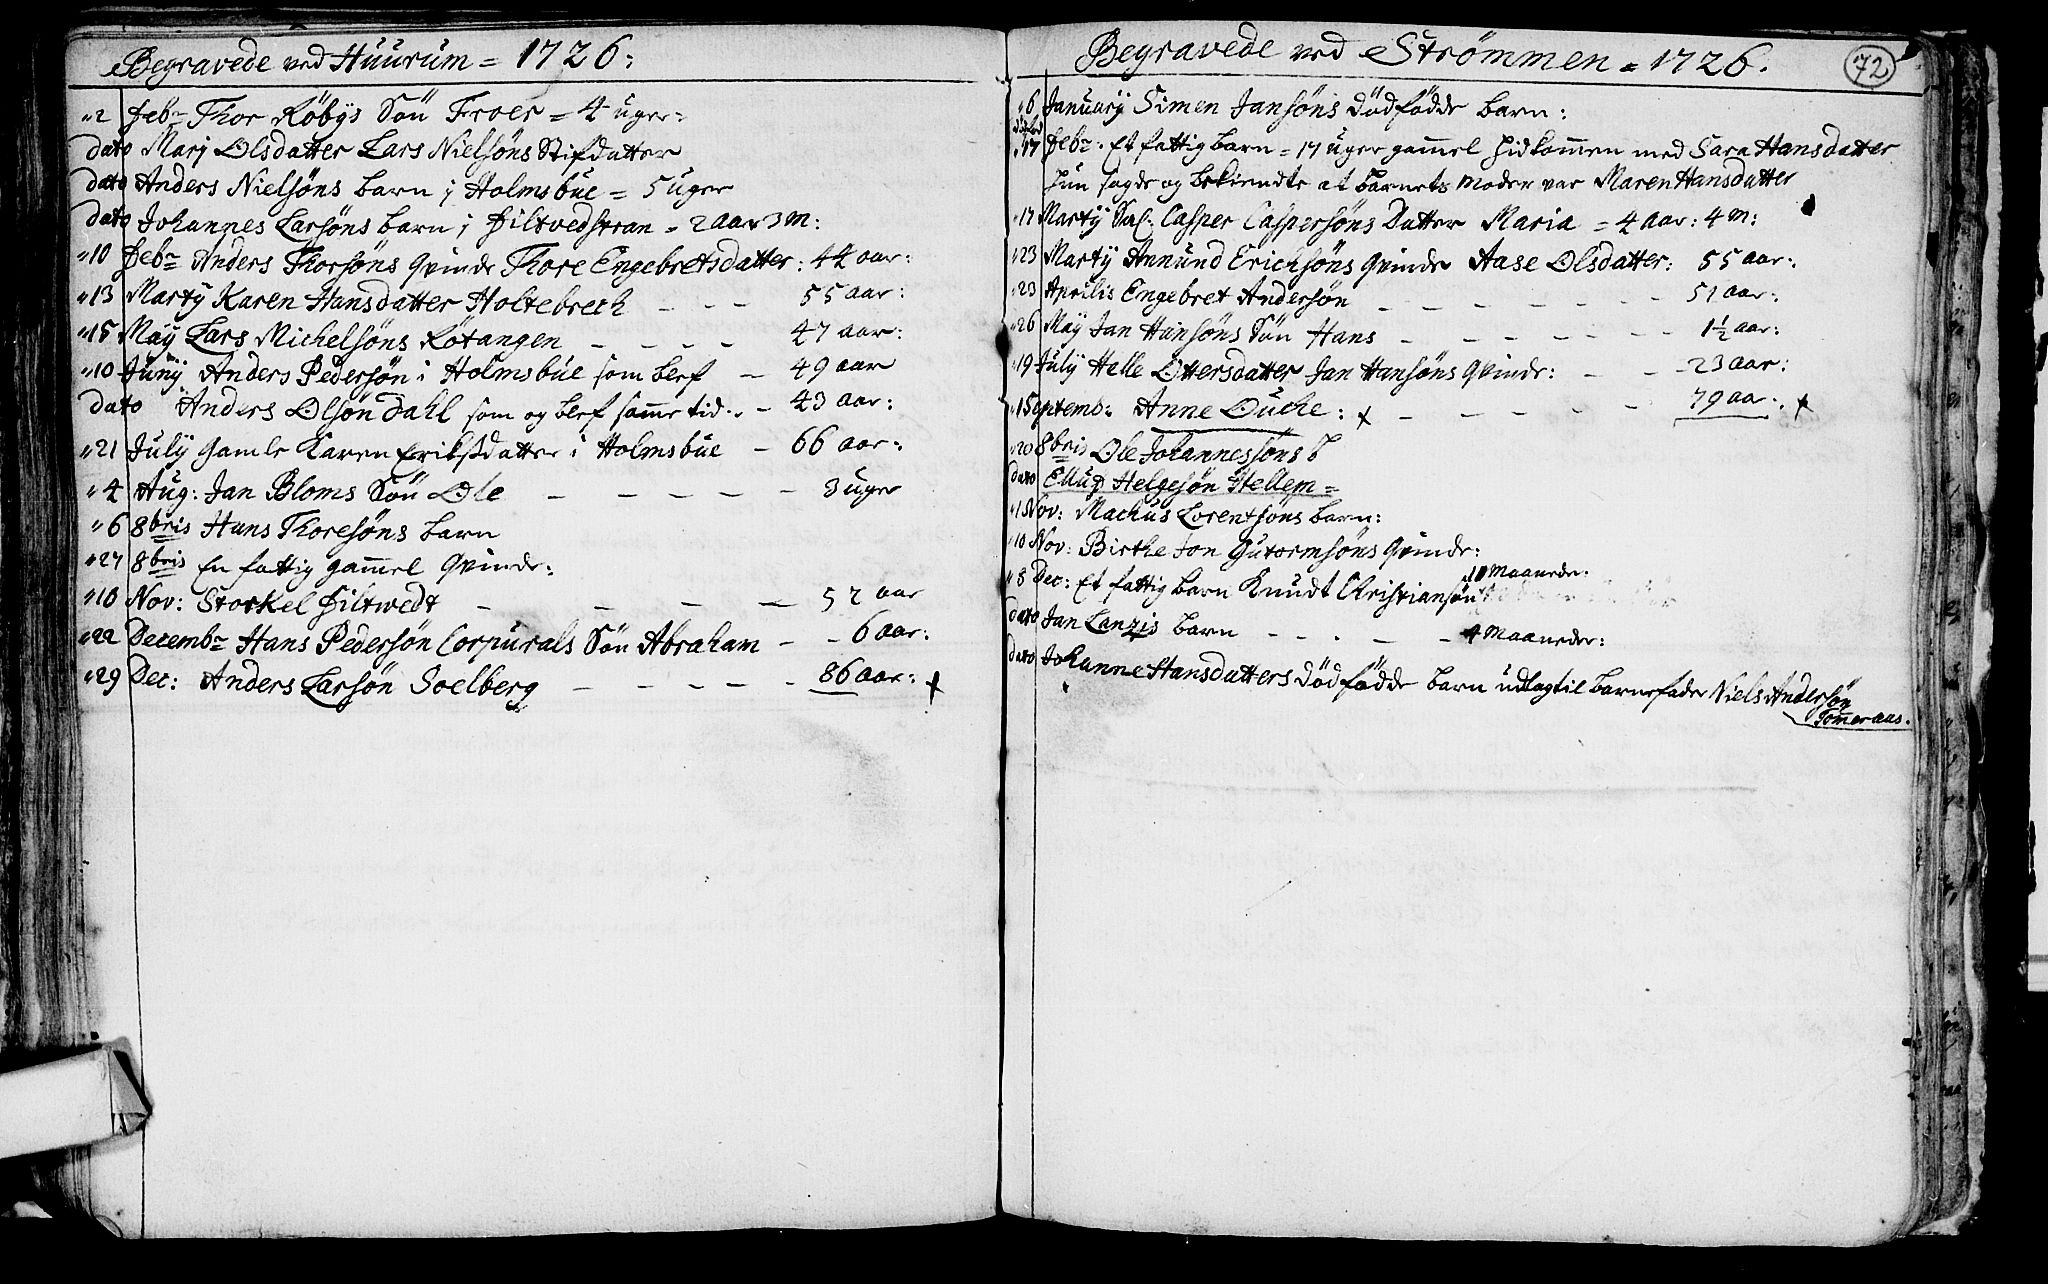 Begravede ved Huurum = 1726:
2 Feb: Thor Röbÿs Sön Troer = 4 uger:
dato Marj Olsdatter Lars Nielsöns Stifdatter
dato Anders Nielsöns barn j Holmsbue = 5 uger
dato Johannes Larsöns barn j Filtvedstran = 2 aar 3 m:
10 Feb: Anders Thorsöns Qvinde Thore Engebretsdatter: 44 aar:
13 Martÿ Karen Hansdatter Holtebrech - - - 55 aar:
15 Maÿ Lars Michelsöns Rötangen - - - - 47 aar:
10 Junÿ Anders Pedersön i Holmsbue som blef - 49 aar
dato Anders Olsön Dahl som og blef samme tid - 43 aar:
21 Julÿ Gamle Karen Eriksdatter i Holmsbue - 66 aar:
4 Aug: Jan Bloms Sön Ole - - - - - 3 uger
6 8bris Hans Thoresöns barn
27 8bris En fattig gammel Qvinde:
10 Nov: Storkel Filtwedt - - - - 52 aar
22 Decemb: Hans Pedersön Corpurals Sön Abraham - - 6 aar:
29 Dec: Anders Larsön Soelberg - - - - - 86 aar: +
Begravede ved Strömmen = 1726.
72
6 Januarÿ Simen Jansöns Dödfödde barn:
17 Feb: Et fattig barn = 17 uger gammel hidkommen med Sara Hansdatter
hun sagde og bekiendte at barnets Moder var Maren Hansdatter
17 Martÿ Sal: Casper Caspersöns Datter Maria = 4 aar: 4 m:
23 Martÿ Annund Ericksöns Qvinde Aase Olsdatter: 55 aar:
23 Aprilis Engebret Andersön - - - - - - - 51 aar:
26 Maÿ Jan Hansöns Sön Hans - - - - - - 1½ aar:
19 Julÿ Helle Ottersdatter Jan Hansöns Qvinde: - - - 23 aar:
15 Septemb: Anne Duche: + - - - - - 79 aar: +
20 8bris Ole Johannessöns
dato Ellug Helgesön Hellem =
1 Nov: Machus Lorentsöns barn:
10 Nov: Birthe Jon Gutormsöns Qvinde:
8 Dec: Et fattig barn Knudt Christiansön 10 Maaneder:
dato Jan Lanzis barn - - - - - 4 Maaneder:
dato Johanne Hansdatters Dödfödde barn udlagt til barnefader Niels Andersön
Tömeraas.